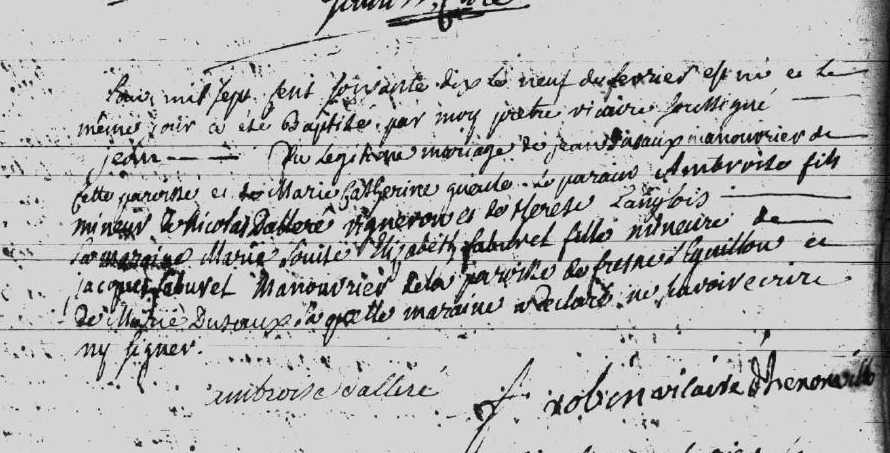 L'an mil sept cent soixante dix le neuf du fevrier est né et le
même jour a été Baptisé par moy prêtre vicaire soussigné
jean — — du legitime mariage de jean Dusaux manouvrier de
cette paroisse et de Marie Catherine queule. Le parain Ambroise fils
mineur de Nicolas Dalleré vigneron et de therese Langlois
la maraine Marie Louise Elizabeth faburet fille mineure de
jacques faburet Manouvrier de la paroisse de fresne l'Eguillon et
de Marie Dusaux. la quelle maraine a declaré ne savoir ecrire
ny signer.
ambroise dalleré
f robin vicaire d'henonville